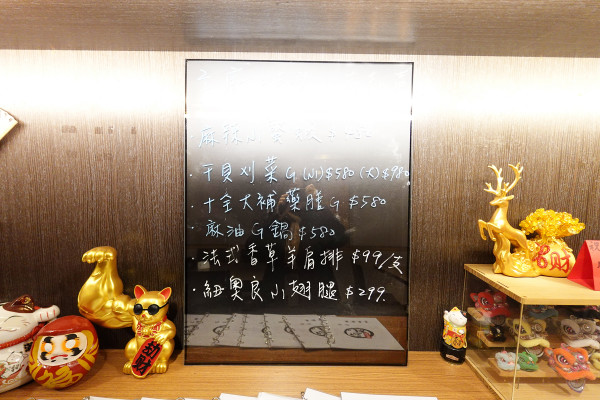 麻辣
·干貝刈菜G(小)$580(大)$980
·十全大補藥膳G $580
·麻油G鍋 $580
·法式香草羊肩排 $99/支
·紐奧良小翅腿 $299.
招財